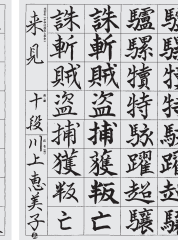 驢騾犢特駭躍超驤
誅斬賊盗捕獲叛亡
誅斬賊盗捕獲叛亡
来見
十段 川上恵美子書